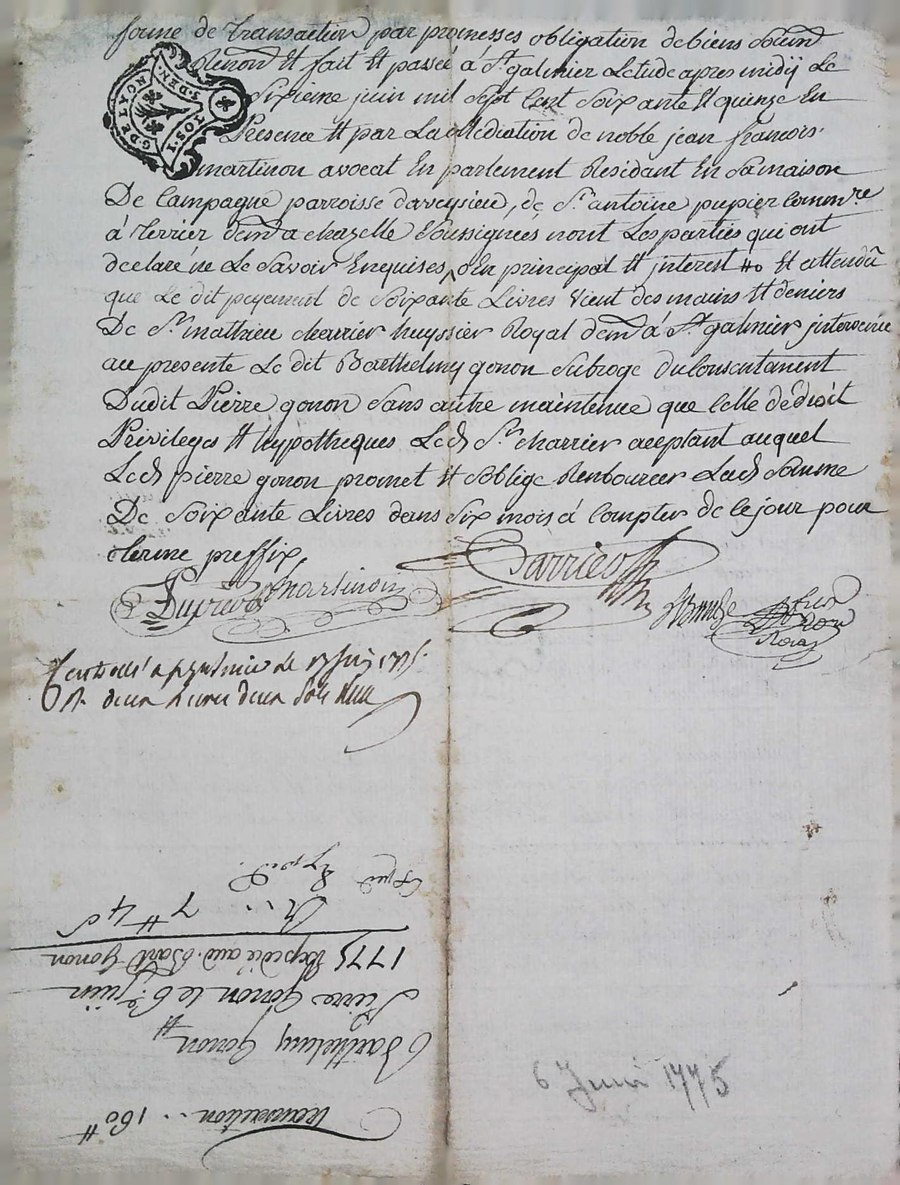 forme de transaction par promesses obligation de biens soum
Renon et fait et passé à St galmier Letude apres midÿ Le
Sixieme juin mil sept Cent Soixante et quinze En
Presence et par La Mediation de noble jean francois
martinon avocat En parlement Residant En Sa maison
De Campagne parroisse daveysieu, de Sr antoine pupier Commre
à terrier demt a chazelle Soussignées nont Les parties qui ont
declaré ne Le Savoir Enquises, En principal et interest et attendu
que Le dit payement de Soixante Livres Vient des mains et deniers
De Sr mathieu charrier huyssier Royal demt à St galmier intervenu
au presente Le dit Barthelmy gonon Subroge du Consentement
Dudit Pierre gonon Sans autre maintenue que Celle de droit
Privileges et hypotheques Led Sr charrier aceptant auquel
Led pierre gonon promet et Soblige Renbourcer Lad Somme
De Soixante Livres dans Six mois à Compter de Ce jour pour
terme preffix
G DE LYON
DEN
Pupier Martinon
Charrier
Controllé a St galmier le 17 juin 1775
R. deux livres deux Sols
Transaction .. 160 ⌗
Barthelmy Gonon
et
Pierre Gonon le 6e juin
1775 Expedié aud. Bart Gonon
7 ⌗ 4 s
6 Juin 1775